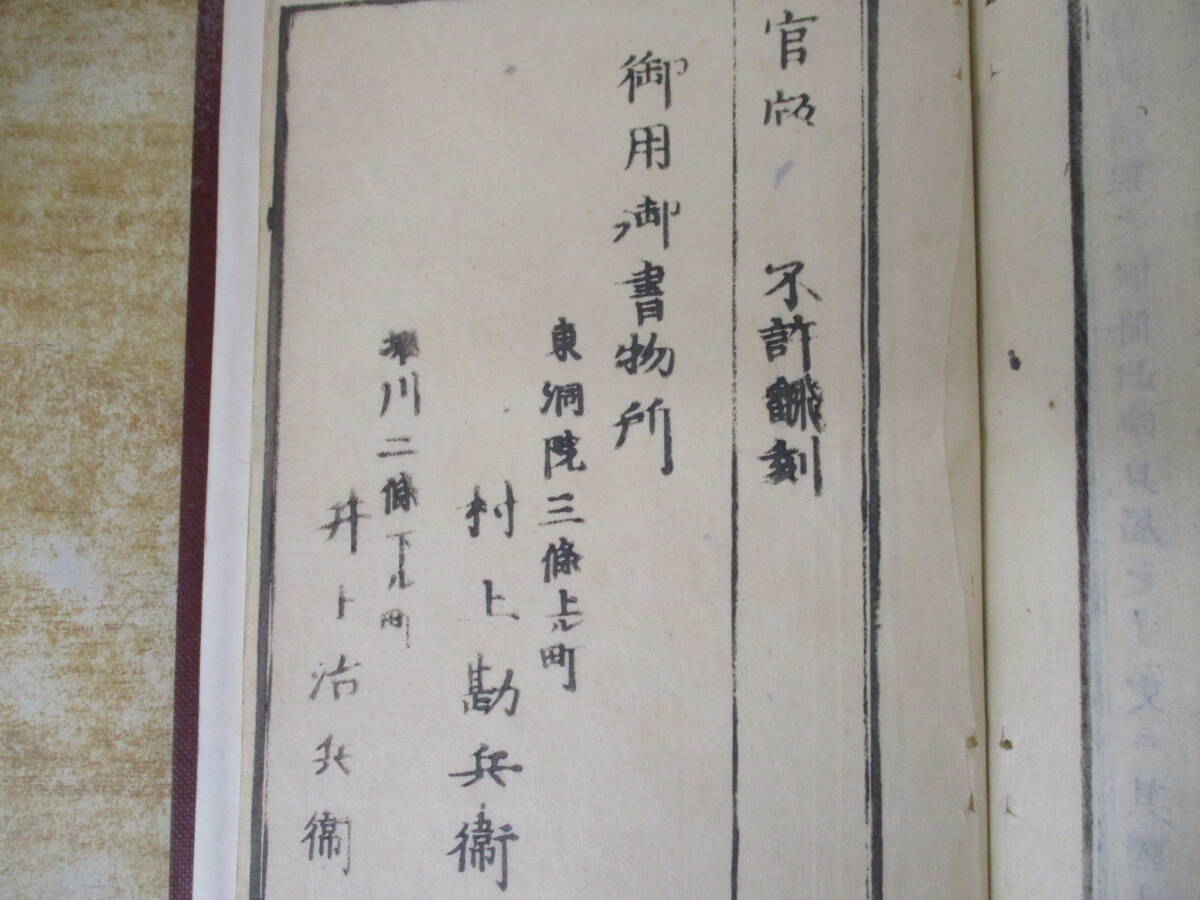 官版 不許翻刻
御用御書物所
東洞院三條上ル町
村上勘兵衛
堀川二條下ル町
井上治兵衛